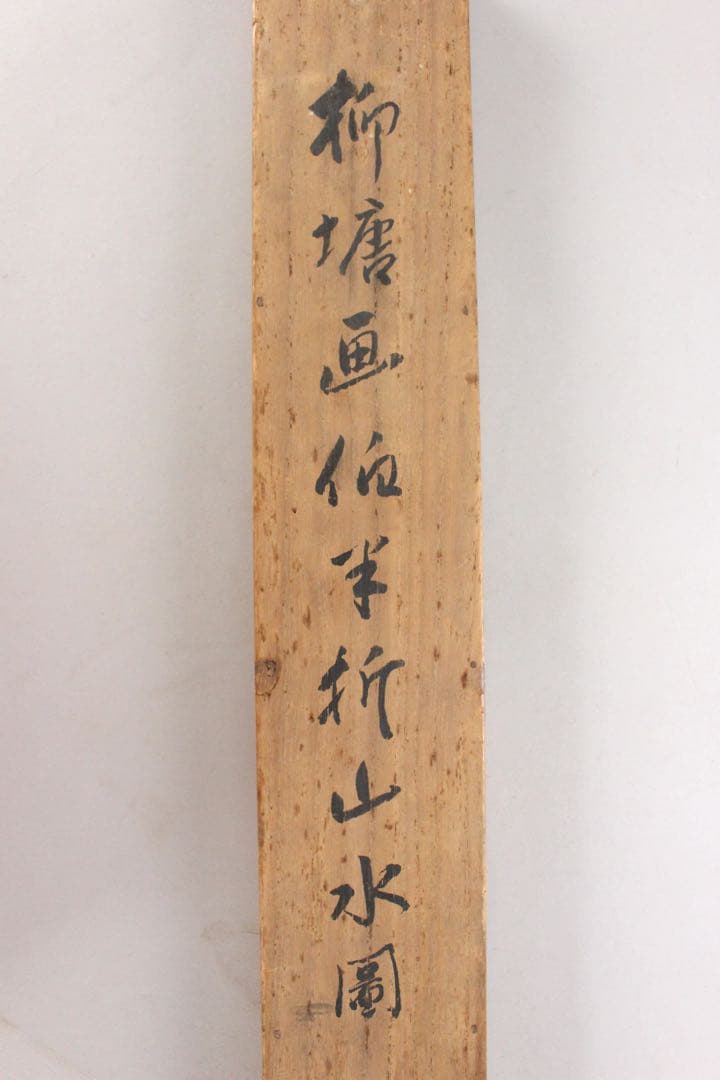 柳塘画伯半折山水圖